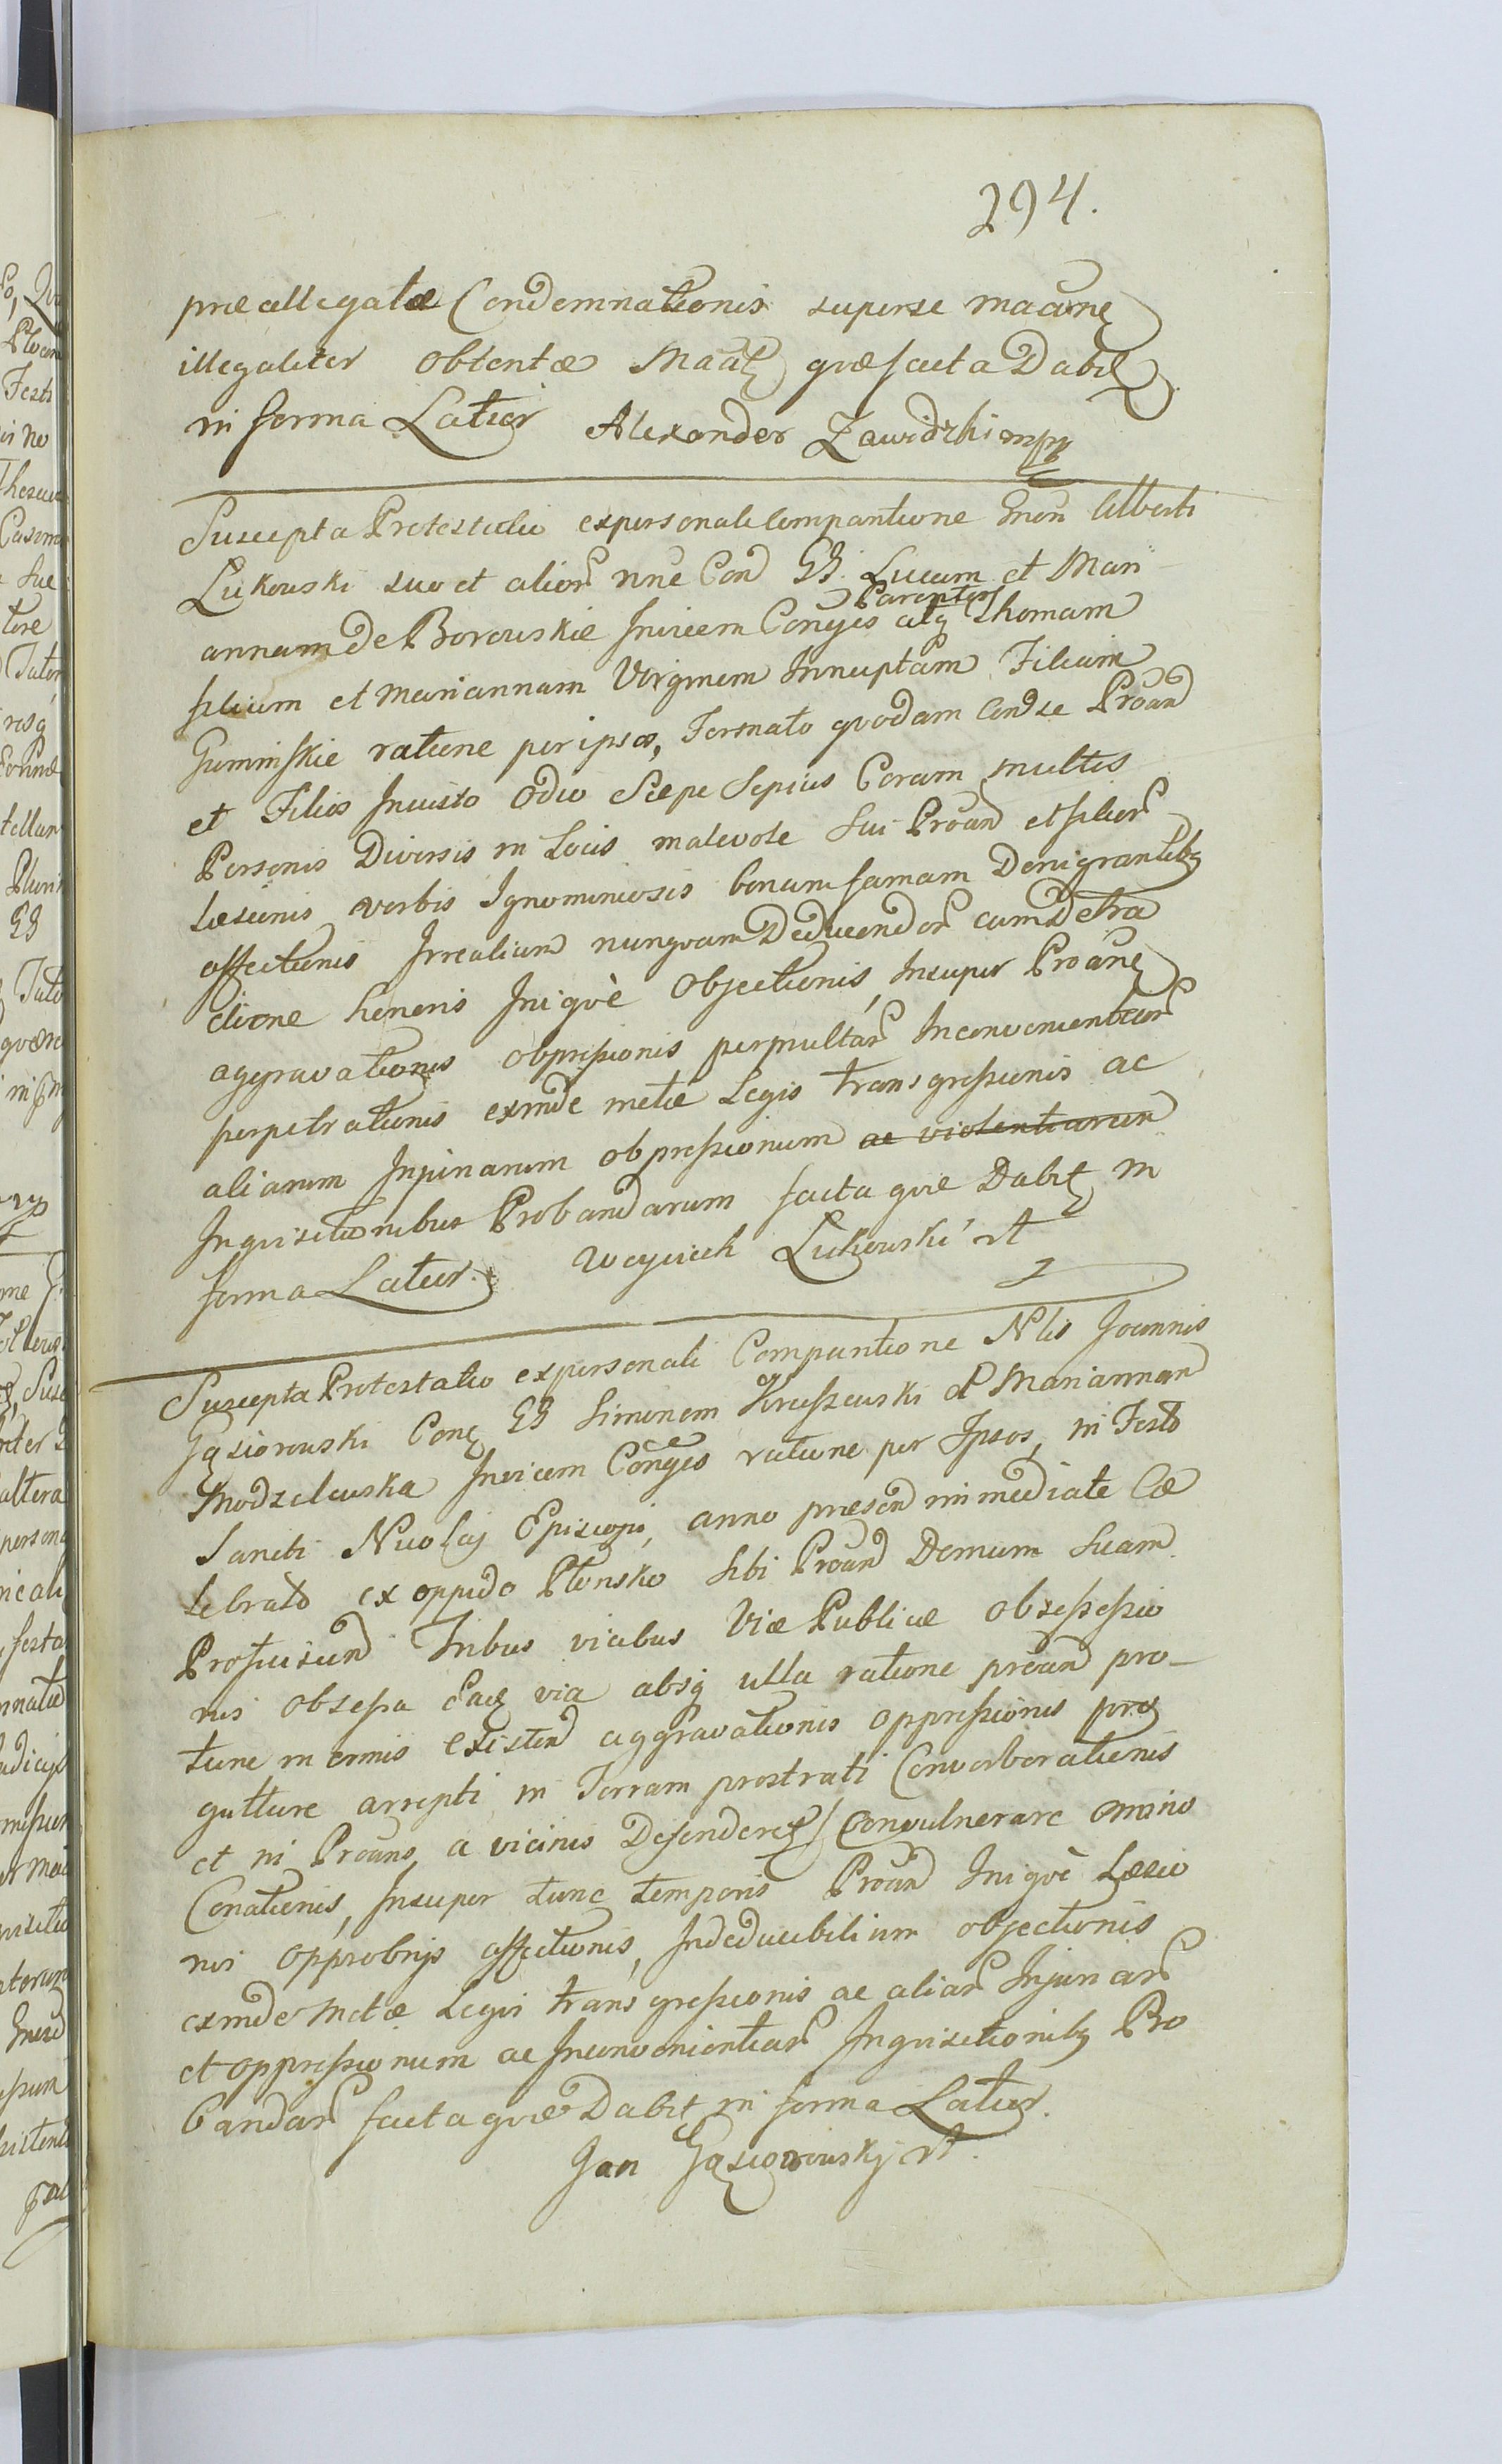 294.
præallegatæ Condemnationis superse
illegaliter obtentæ quæ facta Dabit
in forma Latior Alexander Zawidzki mpp
Suscepta Protestatio expersonali Comparitione Gnen Alberti
Lukowski suo et alior nne Con GG. Lucam et Mari
annam de Borowskie Invicem Conges Parentes atq Thomam
filium et Mariannam Virginem Innuptam Filiam
Guminskie ratione per ipsos, Formato quodam Contra se Proand
et Filios Iniusto Odio Sæpe Sepius Coram multis
Personis Diversis in Locis malevole sui Proand et filior
læsionis verbis Ignominiosis bonam famam Denigrantibq
affectionis Irrealium nunquam Deducendor cum Detra
ctione honoris Iniqvè Objectionis, Insuper Proanq
aggravationis obpressionis permultar Inconvenientiar
perpetrationis exinde metæ Legis transgressionis ac
aliarum Injuriarum obpressionum ac violentiarum
Inquisitionibus Probandarum facta quæ Dabit in
forma Latior. Woyciech Lukowski
Suscepta Protestatio expersonali Comparitione Nlis Joannis
Gąsiorowski Conq GG Simonem Kruszewski et Mariannam
Modzelewska Invicem Conges ratione per Ipsos, in Festo
Sancti Nicolaj Episcopi, anno præsen immediate Ce
lebrato ex oppido Płonsko sibi Proand Domum suam
Proficiscend Tribus vicibus Viæ Publicæ obsessessio
nis obsessa Eaq via absq ulla ratione proand pro-
tunc inermis existend aggravationis oppressionis proq
gutture arrepti in Terram prostrati Converberationis
et ni Proans a vicinis Defenderet Convulnerare omnino
Conationis, Insuper tunc temporis Proand Iniqvè Læsio
nis opprobrijs affectionis, Indeducibilium objectionis
exinde Metæ Legis transgressionis ac aliar Injuriar
et oppressionum ac Inconvenientiar Inquisitionibq Pro
bandar facta quæ Dabit in forma Latior.
Jan Gąsiorowskij